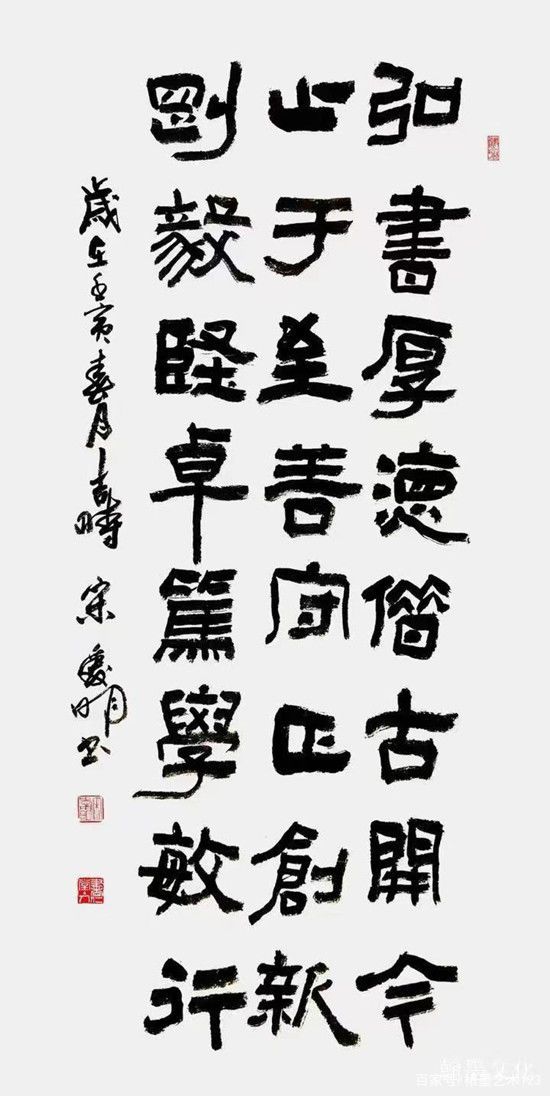 弘書厚德借古開今
止于至善守正創新
剛毅堅卓篤學敏行
歲在壬寅春月吉時 宋明書
翰墨文化
百家号/翰墨艺术